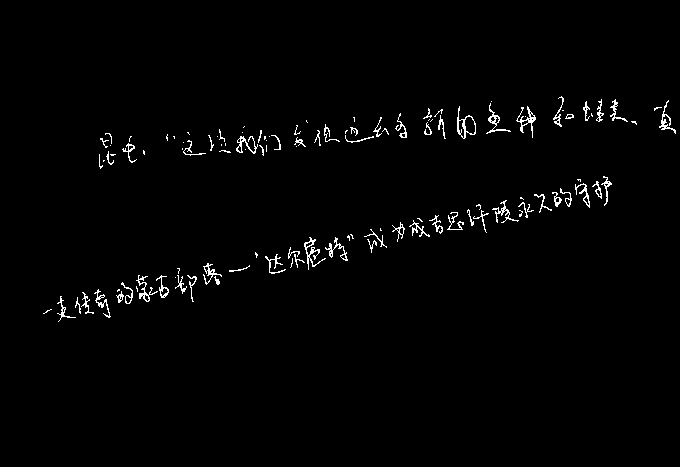 昆虫,“这次我们发现这么多新的鱼种和蛙类、真
一支传奇的蒙古部落—“达尔扈特”成为成吉思汗陵永久的守护